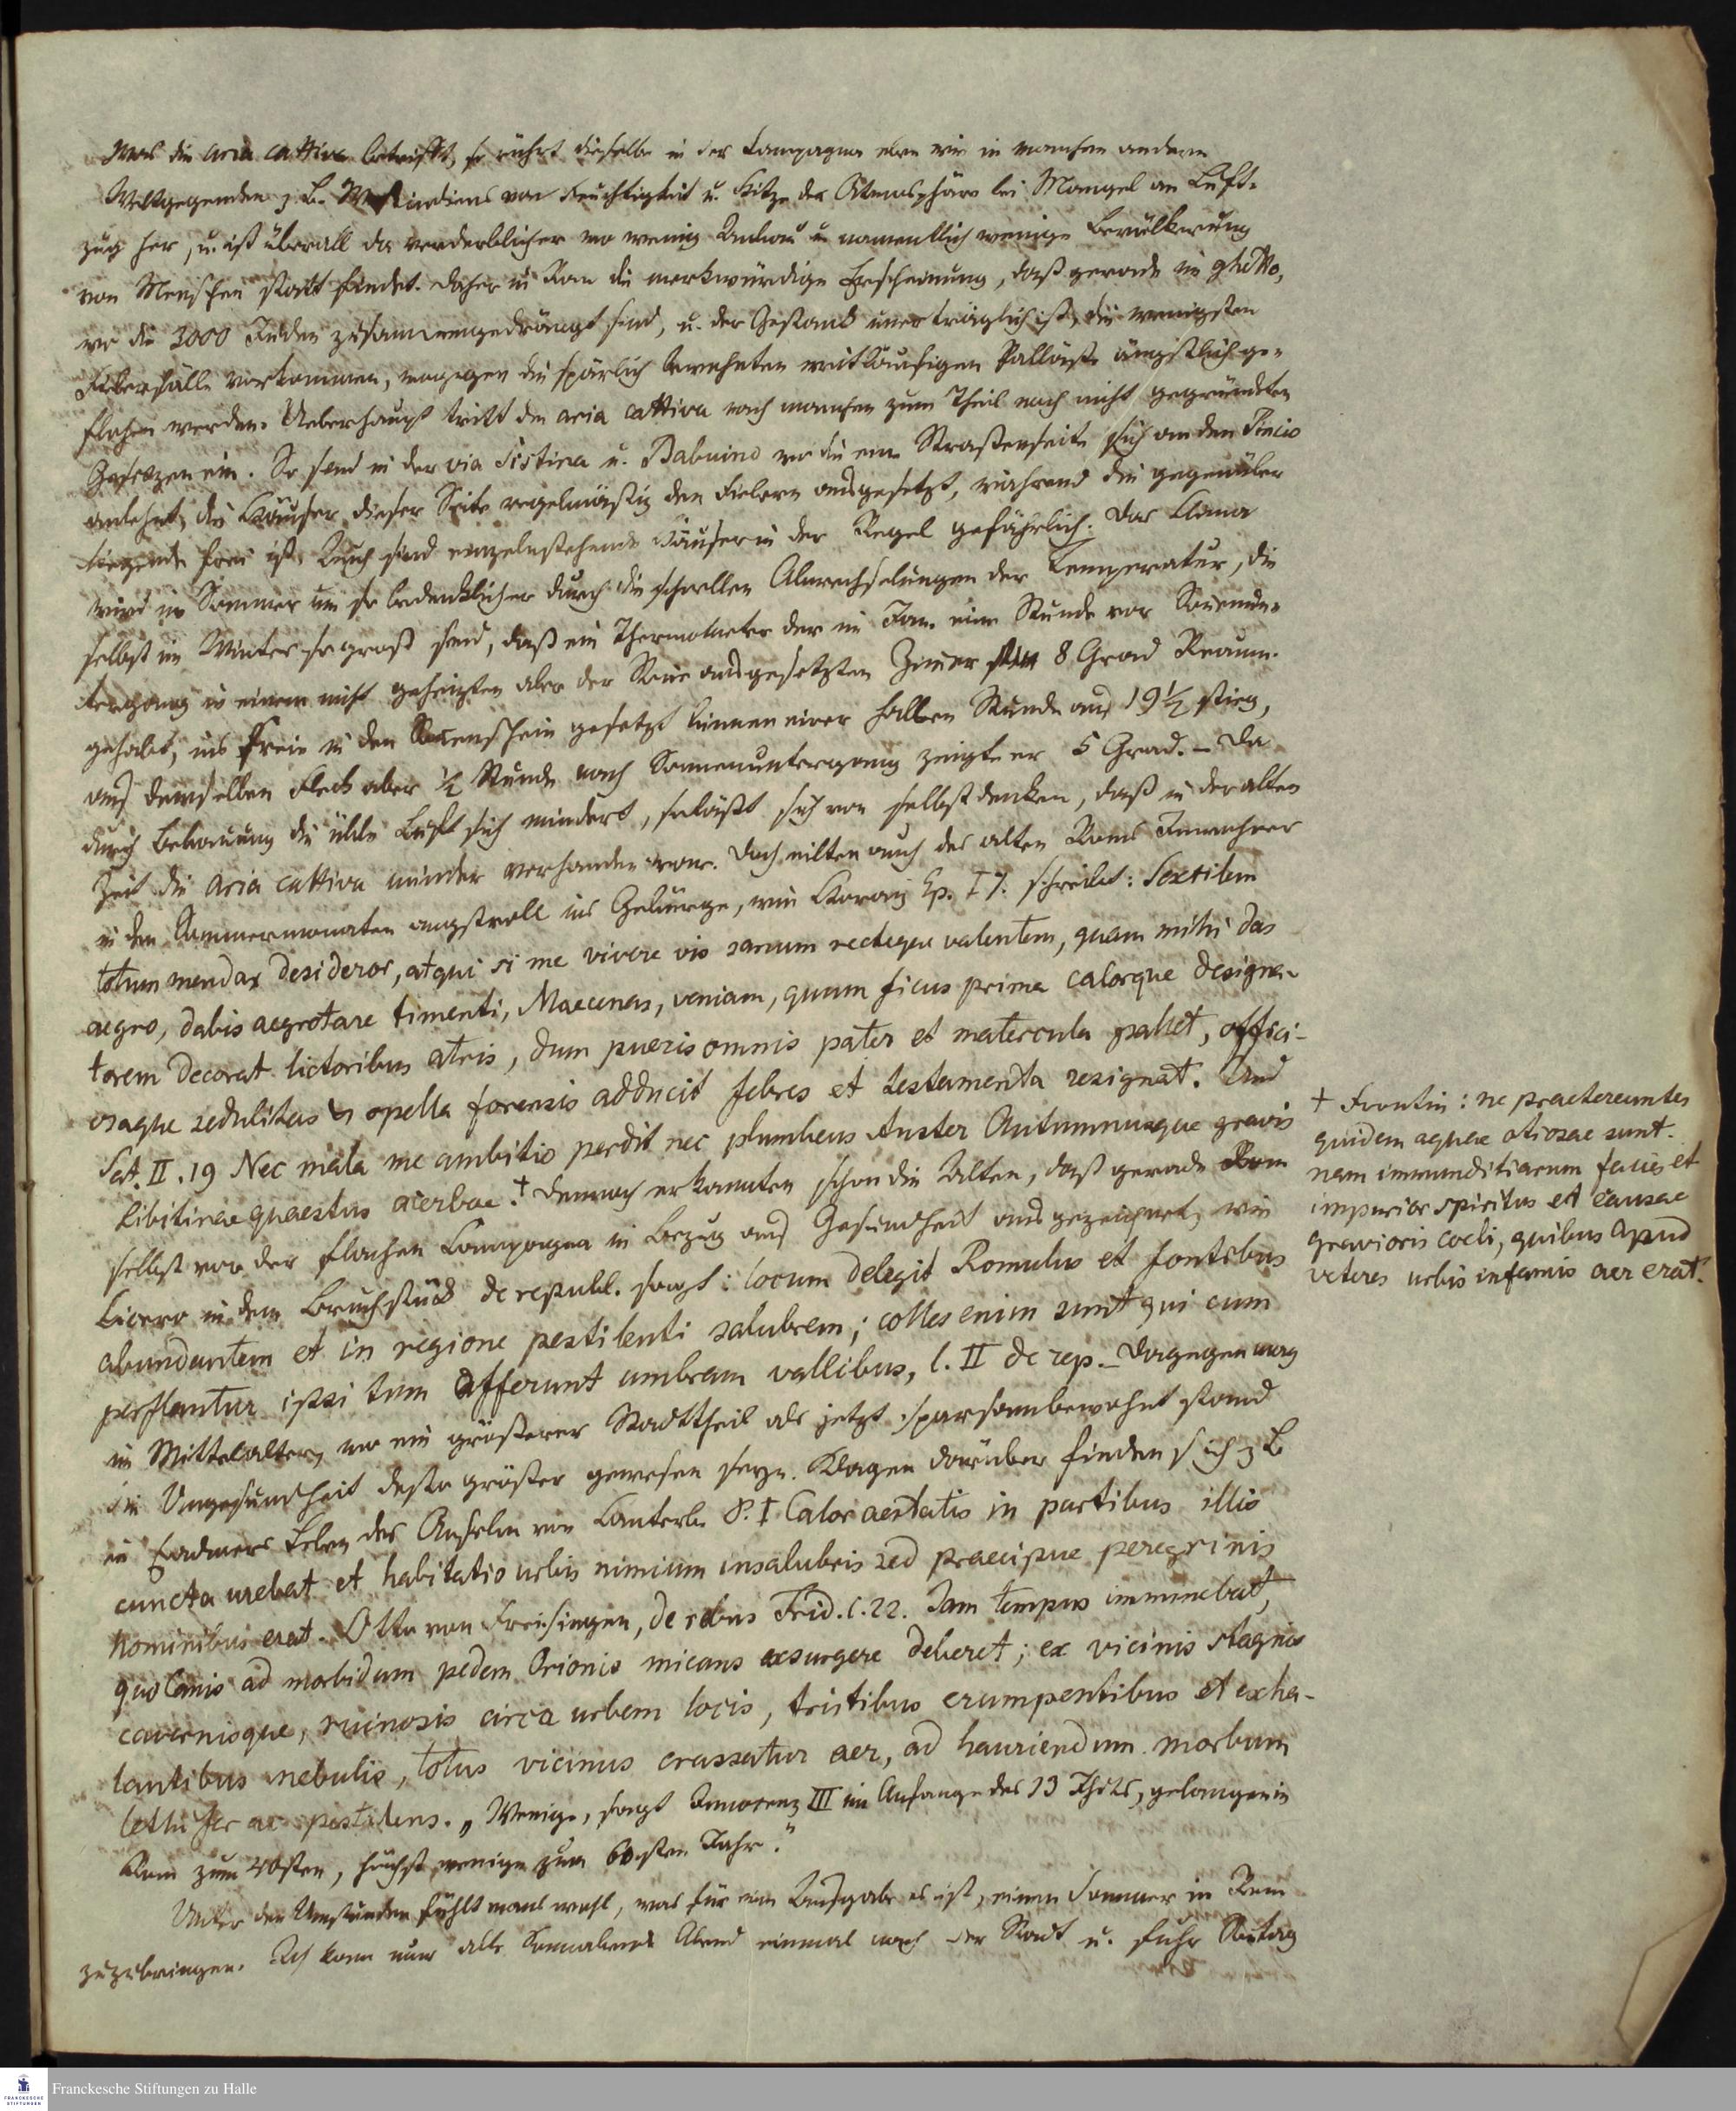 Was die aria cattiva betrifft, so rührt dieselbe in der Campagna eben wie in manchen andern
Weltgegenden z. B. Westindiens von Feuchtigkeit u. Hitze der Atmosphäre bei Mangel an Luft-
zug her, u. ist überall da verderblicher wo wenig Anbau u namentlich wenige Bevölkerung
von Menschen statt findet. Daher in Rom die merkwürdige Erscheinung, daß gerade im ghetto,
wo die 3000 Juden zusammengedrängt sind, u. der Gestank unerträglich ist, die wenigsten
Fieberfälle vorkommen, wogegen die spärlich bewohnten weitläufigen Palläste ängstlich ge-
flohen werden. Ueberhaupt tritt die aria cattiva nach manchen zum Theil noch nicht gegründeten
Gesetzen ein. So sind in der via Sistina u. Babuino wo die eine Straßenseite sich an den Pincio
anlehnt, die Häuser dieser Seite regelmäßig den Fiebern ausgesetzt, während die gegenüber
liegende frei ist. Auch sind einzelnstehende Häuser in der Regel gefährlich. Das Clima
wird im Sommer um so bedenklicher durch die schnellen Abwechselungen der Temperatur, die
selbst im Winter so groß sind, daß ein Thermometer der im Jan. eine Stunde vor Sonnenun-
tergang in einem nicht geheizten aber der Sonne ausgesetzten Zimer 8 Grad Reaum.
gehabt, ins Freie in den Sonenschein gesetzt binnen einer halben Stunde auf 19½ stieg,
auf demselben Fleck aber ½ Stunde nach Sonnenuntergang zeigte er 5 Grad. – Da
durch Bebauung die üble Luft sich mindert, so läßt sich von selbst denken, daß in der alten
Zeit die aria cattiva minder vorhanden war. Doch eilten auch des alten Roms Innwohner
in den Sommermonaten angstvoll ins Gebürge, wie Horaz Ep. I 7. schreibt: Sextilem
totum mendax desideror, atqui si me vivere vis sanum recteque valentem, quam mihi das
aegro, dabis aegrotare timenti, Maecenas, veniam, quum ficus prima calorque designa-
torem decorat lictoribus atris, dum pueris omnis pater et matercula pallet, offici-
osaque sedulitas et opella forensis adducit febres et testamenta resignat. Und
Sat. II. 19 Nec mala me ambitio perdit nec plumbeus Auster Autumnusque gravis
Libitinae quaestus acerbae.† Dennoch erkannten schon die Alten, daß gerade Rom
selbst vor der flachen Campagna in Bezug auf Gesundheit ausgezeichnet, wie
Cicero in dem Bruchstück de republ. sagt: locum delegit Romulus et fontibus
abundantem et in regione pestilenti salubrem; colles enim sunt qui cum
perflantur ipsi tum afferunt umbram vallibus, l. II de rep. – Dagegen mag
im Mittelalter, wo ein größerer Stadttheil als jetzt sparsam bewohnt stand
die Ungesundheit desto größer gewesen seyn. Klagen darüber finden sich z B
in Eadmers Leben des Anselm von Canterb. P. I Calor aestatis in partibus illis
cuncta urebat et habitatio urbis nimium insalubris sed praecipue peregrinis
hominibus erat. Otto von Freisingen, de rebus Frid. c. 22. Jam tempus imminebat,
quo Canis ad morbidum pedem Orionis micans exsurgere deberet; ex vicinis stagnis
cavernisque, ruinosis circa urbem locis, tristibus erumpentibus et exha-
lantibus nebulis, totus vicinus crassatur aer, ad hauriendum morbum
lethifer ac pestilens. „Wenige, sagt Innocenz III im Anfange des 13 Jhdts, gelangen in
Rom zum 40sten, höchst wenige zum 60sten Jahr."
Unter den Umständen fühlt man wohl, was für eine Aufgabe es ist, einen Sommer in Rom
zuzubringen. Ich kam nur alle Sonnabend Abend einmal nach der Stadt u. fuhr Sontag
† Frontin: ne praetereuntes
quidem aquae otiosae sunt.
nam immunditiarum facies et
impurior spiritus et causae
gravioris coeli, quibus apud
veteres urbis infamis aer erat.
Franckesche Stiftungen zu Halle
FRANCKESCHE STIFTUNGEN